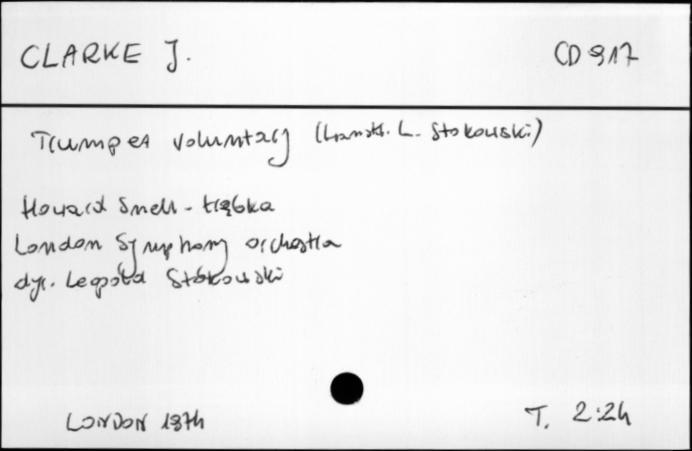 CLARKE J. CD 917
Trumpet voluntary (transkr. L. Stokowski)
Howard Snell - trąbka
London Symphony Orchestra
dyr. Leopold Stokowski
LONDON 1974 T. 2:24